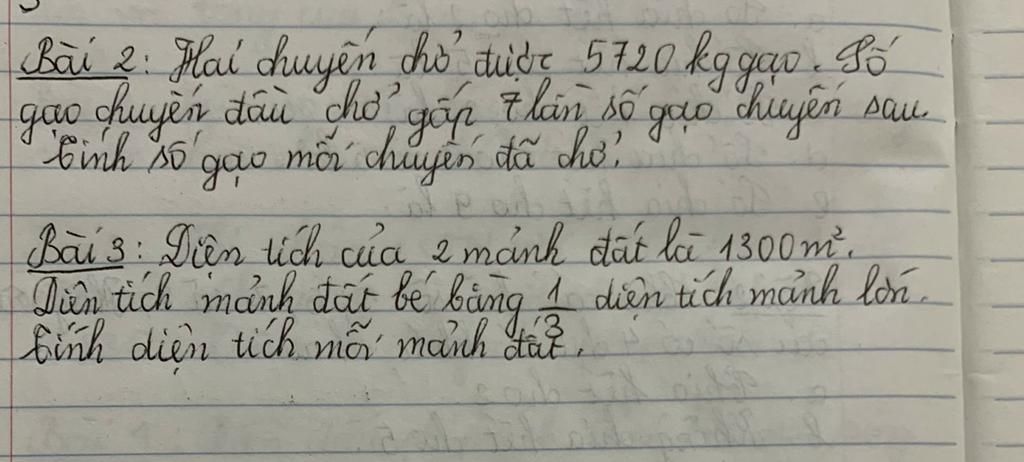 Bài 2: Hai chuyến chở được 5720 kg gạo. Số
gạo chuyến đầu chở gấp 7 lần số gạo chuyến sau.
Tính số gạo mỗi chuyến đã chở.
Bài 3: Diện tích của 2 mảnh đất là 1300m².
Diện tích mảnh đất bé bằng 1/3 diện tích mảnh lớn.
Tính diện tích mỗi mảnh đất.